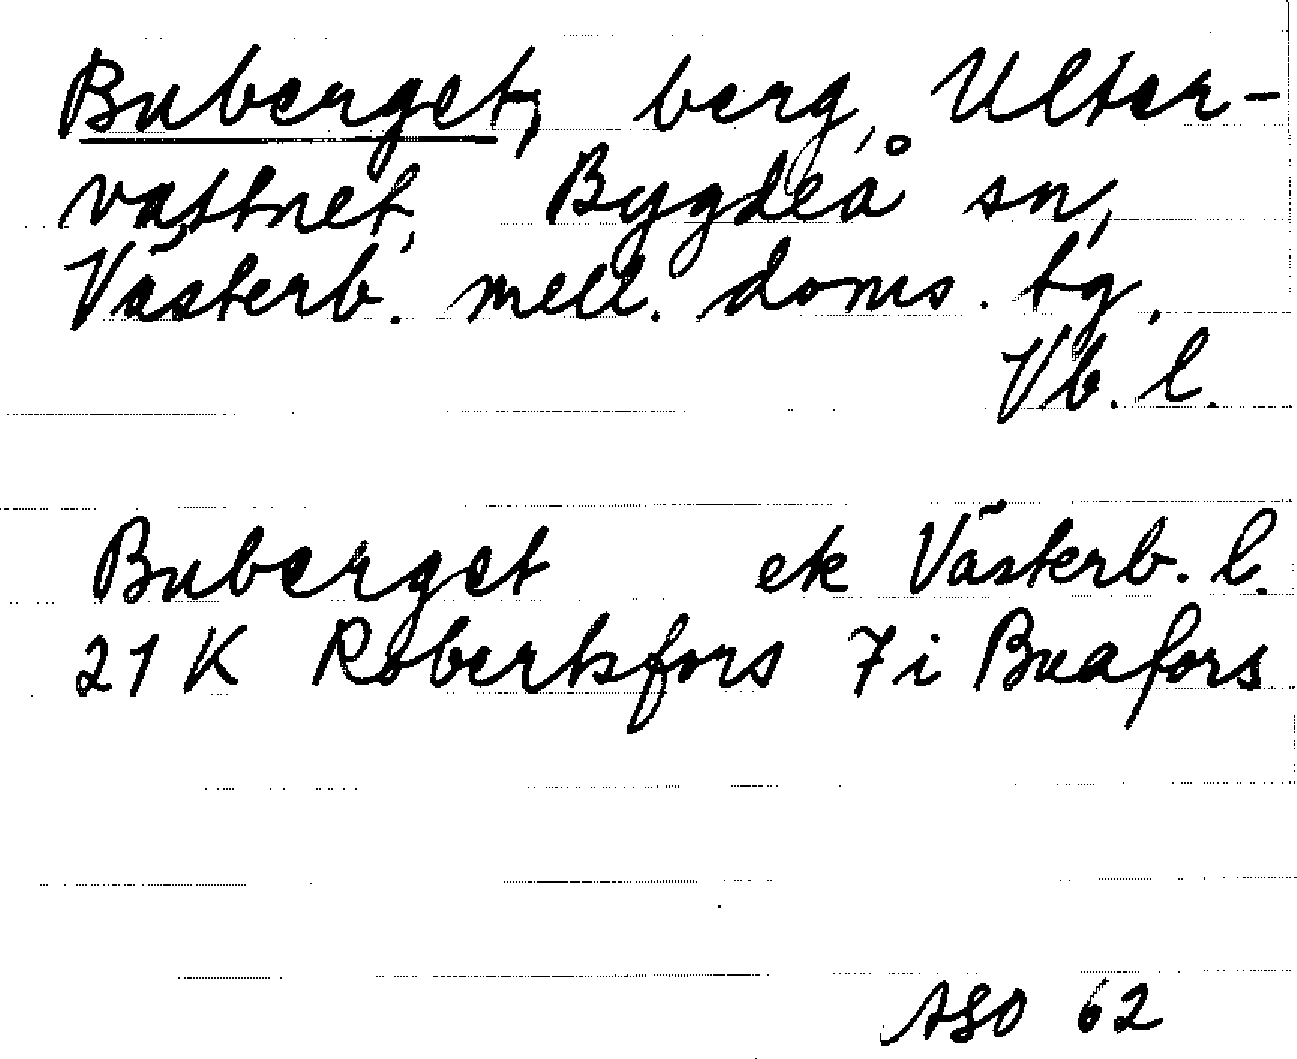 Buberget, berg, Ulter-
vattnet, Bygdeå sn,
Västerb. mell. doms. tg,
Vb. l.
Buberget ek Västerb. l.
21 K Robertsfors 7 i Buafors
ASO 62